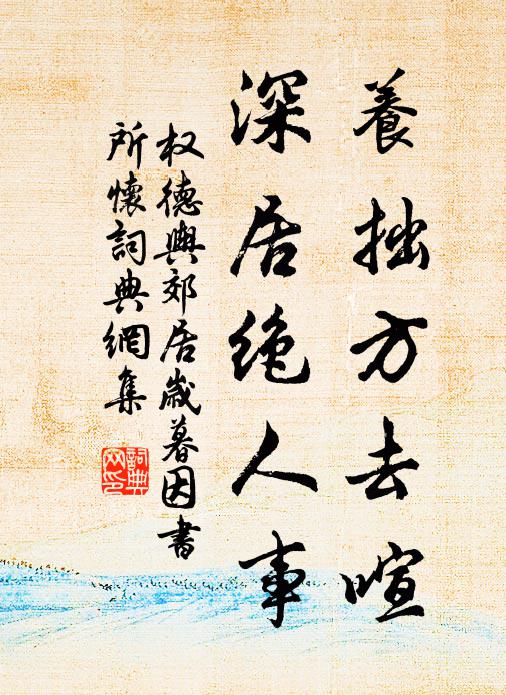 養拙方去喧
深居絶人事
权德輿郊居歲暮因書
所懷詞典網集
詞典
网印